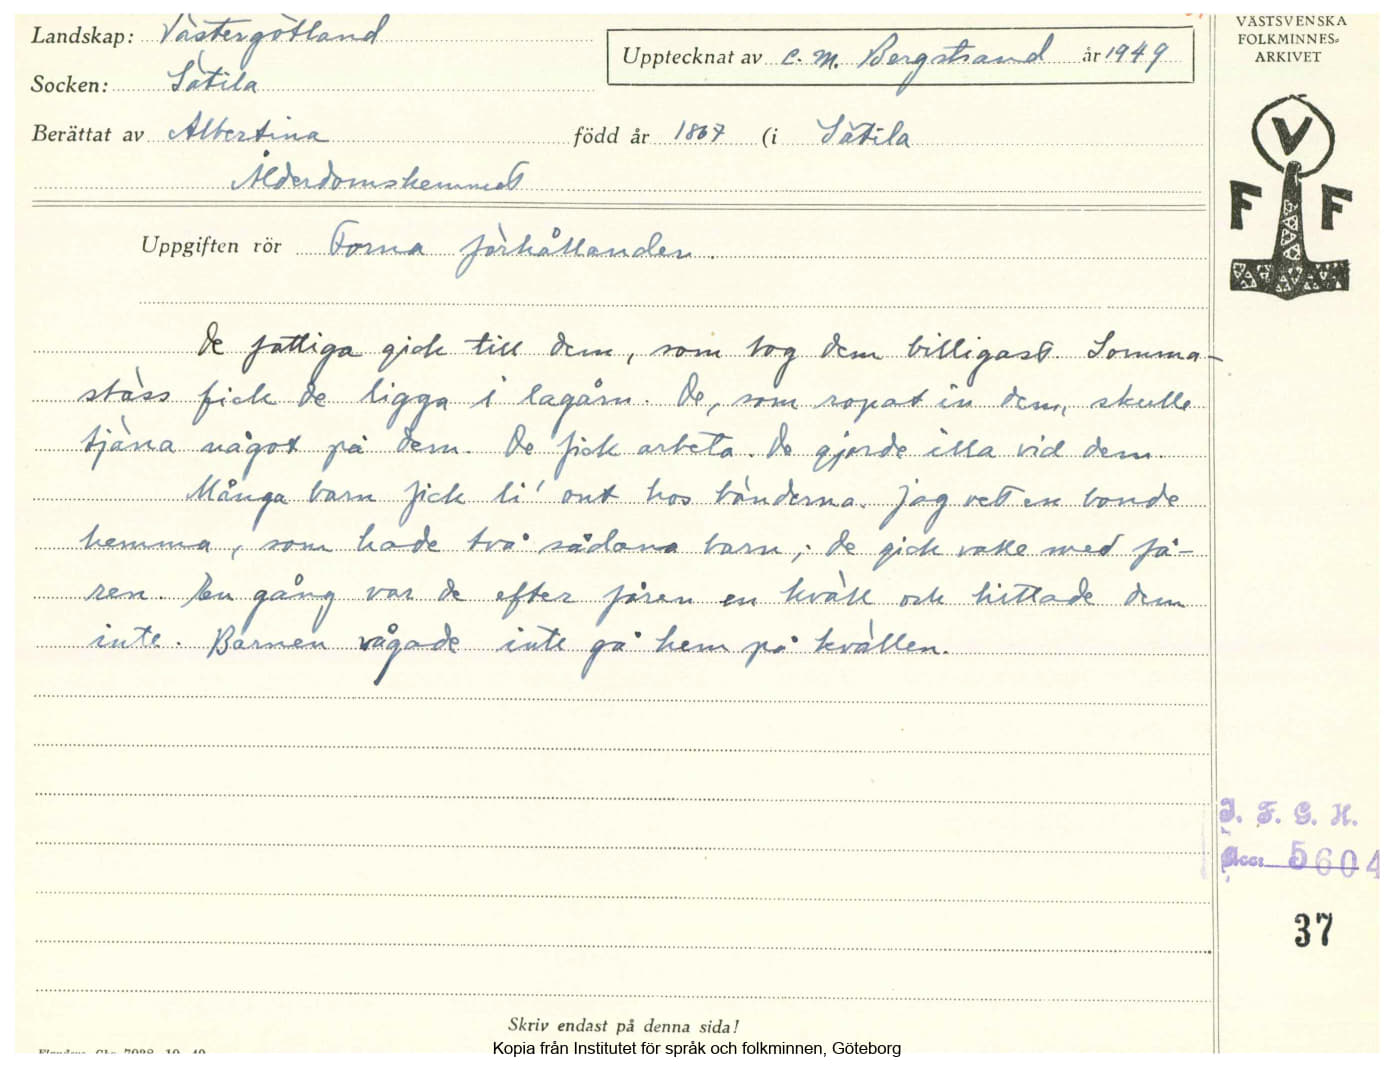 Landskap: Västergötland
Socken: Sätila
Upptecknat av C. M. Bergstrand år 1949
Berättat av Albertina född år 1867 (i Sätila
Ålderdomshemmet
VÄSTSVENSKA
FOLKMINNES-
ARKIVET
V
F F
Uppgiften rör Forna förhållanden.
De fattiga gick till dem, som tog dem billigast. Somma-
stäss fick de ligga i lagårn. De, som ropat in dem, skulle
tjäna något på dem. De fick arbeta. De gjorde illa vid dem.
Många barn fick li' ont hos bönderna. Jag vet en bonde
hemma, som hade två sådana barn; de gick valle med få-
ren. En gång var de efter fåren en kväll och hittade dem
inte. Barnen vågade inte gå hem på kvällen.
I. F. G. H.
Acc: 5604
37
Skriv endast på denna sida!
Kopia från Institutet för språk och folkminnen, Göteborg